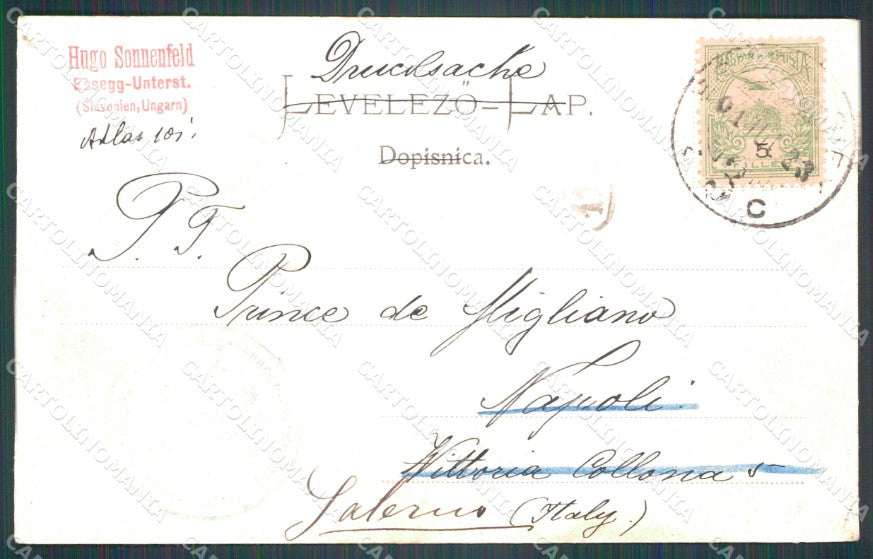 Hugo Sonnenfeld
Essegg-Unterst.
(Slavonien, Ungarn)
Atlas 101.
Drucksache
LEVELEZŐ-LAP.
Dopisnica.
MAGYAR KIR. POSTA
5
FILLER
C
P. T.
Prince de Migliano
Napoli.
Vittoria Collona 5
Salerno (Italy.)
CARTOLINOMANIA